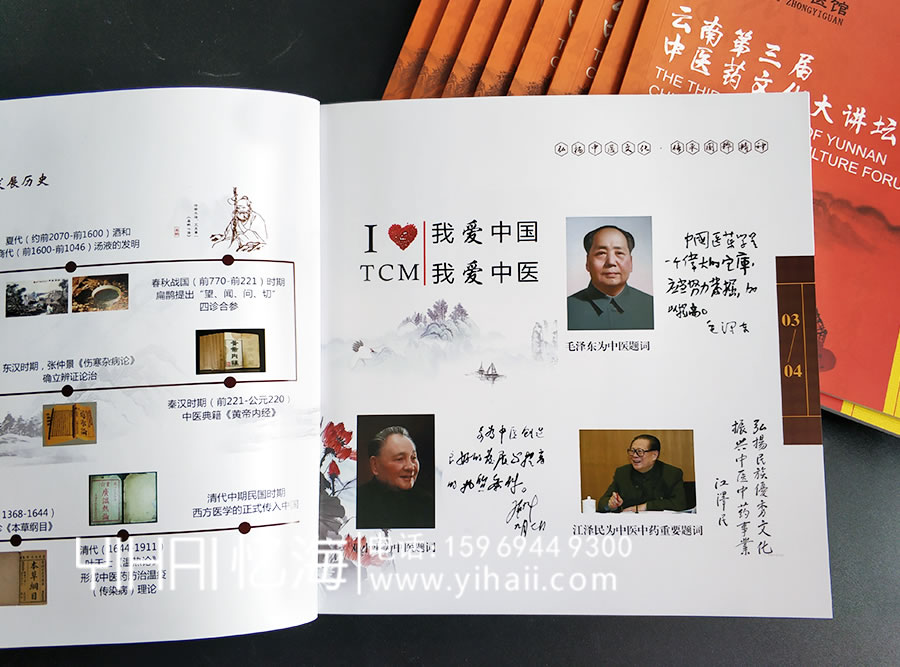 医馆
ZHONGYIGUAN
云南第三届
中医药文化大讲坛
THE THIRD
OF YUNNAN
CULTURE FORUM
发展历史
夏代（约前2070-前1600）酒和
商代（前1600-前1046）汤液的发明
春秋战国（前770-前221）时期
扁鹊提出“望、闻、问、切”
四诊合参
东汉时期，张仲景《伤寒杂病论》
确立辨证论治
秦汉时期（前221-公元220）
中医典籍《黄帝内经》
1368-1644）
《本草纲目》
清代中期民国时期
西方医学的正式传入中国
清代（1644-1911）
形成中医药防治温疫
（传染病）理论
本草綱目
弘扬中医文化·传承国粹精神
I TCM
我爱中国
我爱中医
中國医药学是
一个伟大的宝庫，
应当努力发掘，加
以提高。
毛泽东
毛泽东为中医题词
03
04
为中医创造
良好的发展与提高
的物质条件。
邓小平为中医题词
弘揚民族優秀文化
振興中医中药事業
江泽民
江泽民为中医中药重要题词
YIHAI 忆海
电话 159 6944 9300
www.yihaii.com